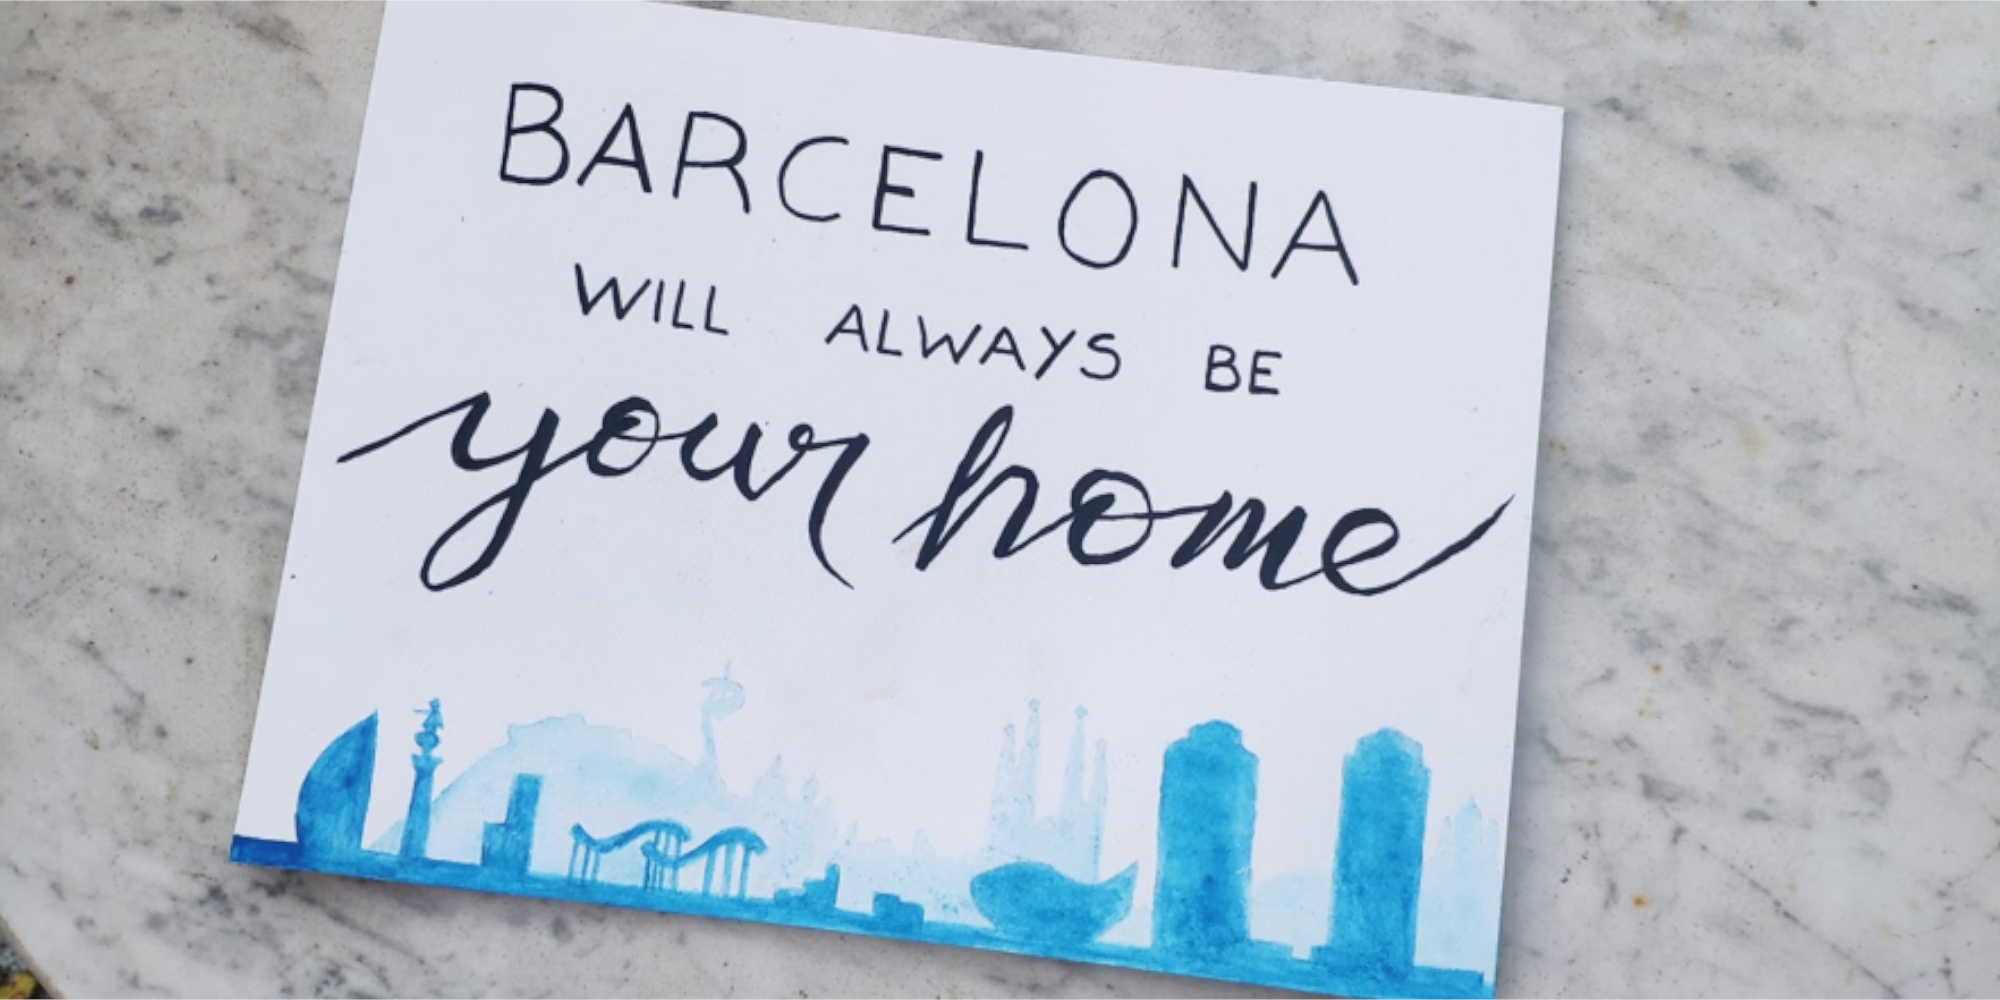 BARCELONA
WILL ALWAYS BE
your home